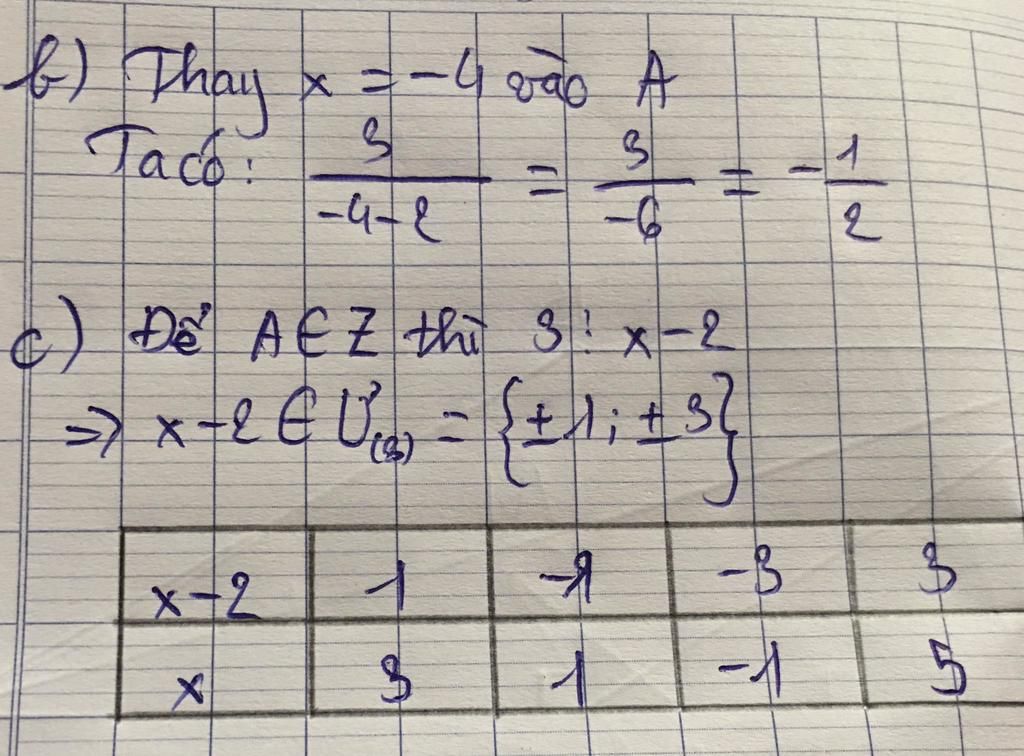 b) Thay x = -4 vào A
Ta có: 3/(-4-2) = 3/(-6) = -1/2
c) Để A ∈ Z thì 3 ⋮ x-2
=> x-2 ∈ Ư(3) = {±1; ±3}
x-2 1 -1 -3 3
x 3 1 -1 5